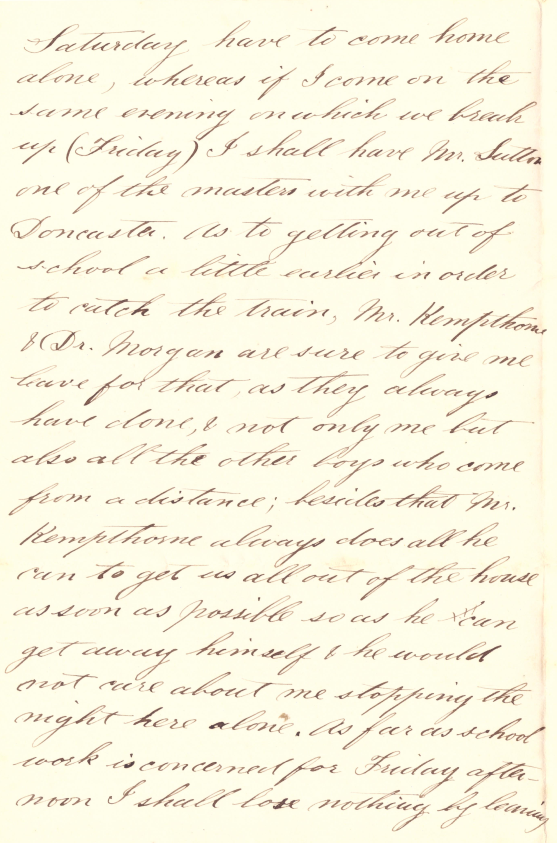 Saturday have to come home
alone, whereas if I come on the
same evening on which we break
up (Friday) I shall have Mr. Sutton
one of the masters with me up to
Doncaster. As to getting out of
school a little earlier in order
to catch the train, Mr. Kempthorne
& Dr. Morgan are sure to give me
leave for that, as they always
have done, & not only me but
also all the other boys who come
from a distance; besides that Mr.
Kempthorne always does all he
can to get us all out of the house
as soon as possible so as he can
get away himself & he would
not care about me stopping the
night here alone. As far as school
work is concerned for Friday after-
noon I shall lose nothing by leaving